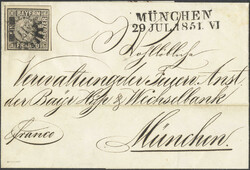 BAYERN
MÜNCHEN
29 JUL. 1851. VI
Verwaltung der Feuer. Anst
der Bayr Hyp & Wechselbank
Franco
München.